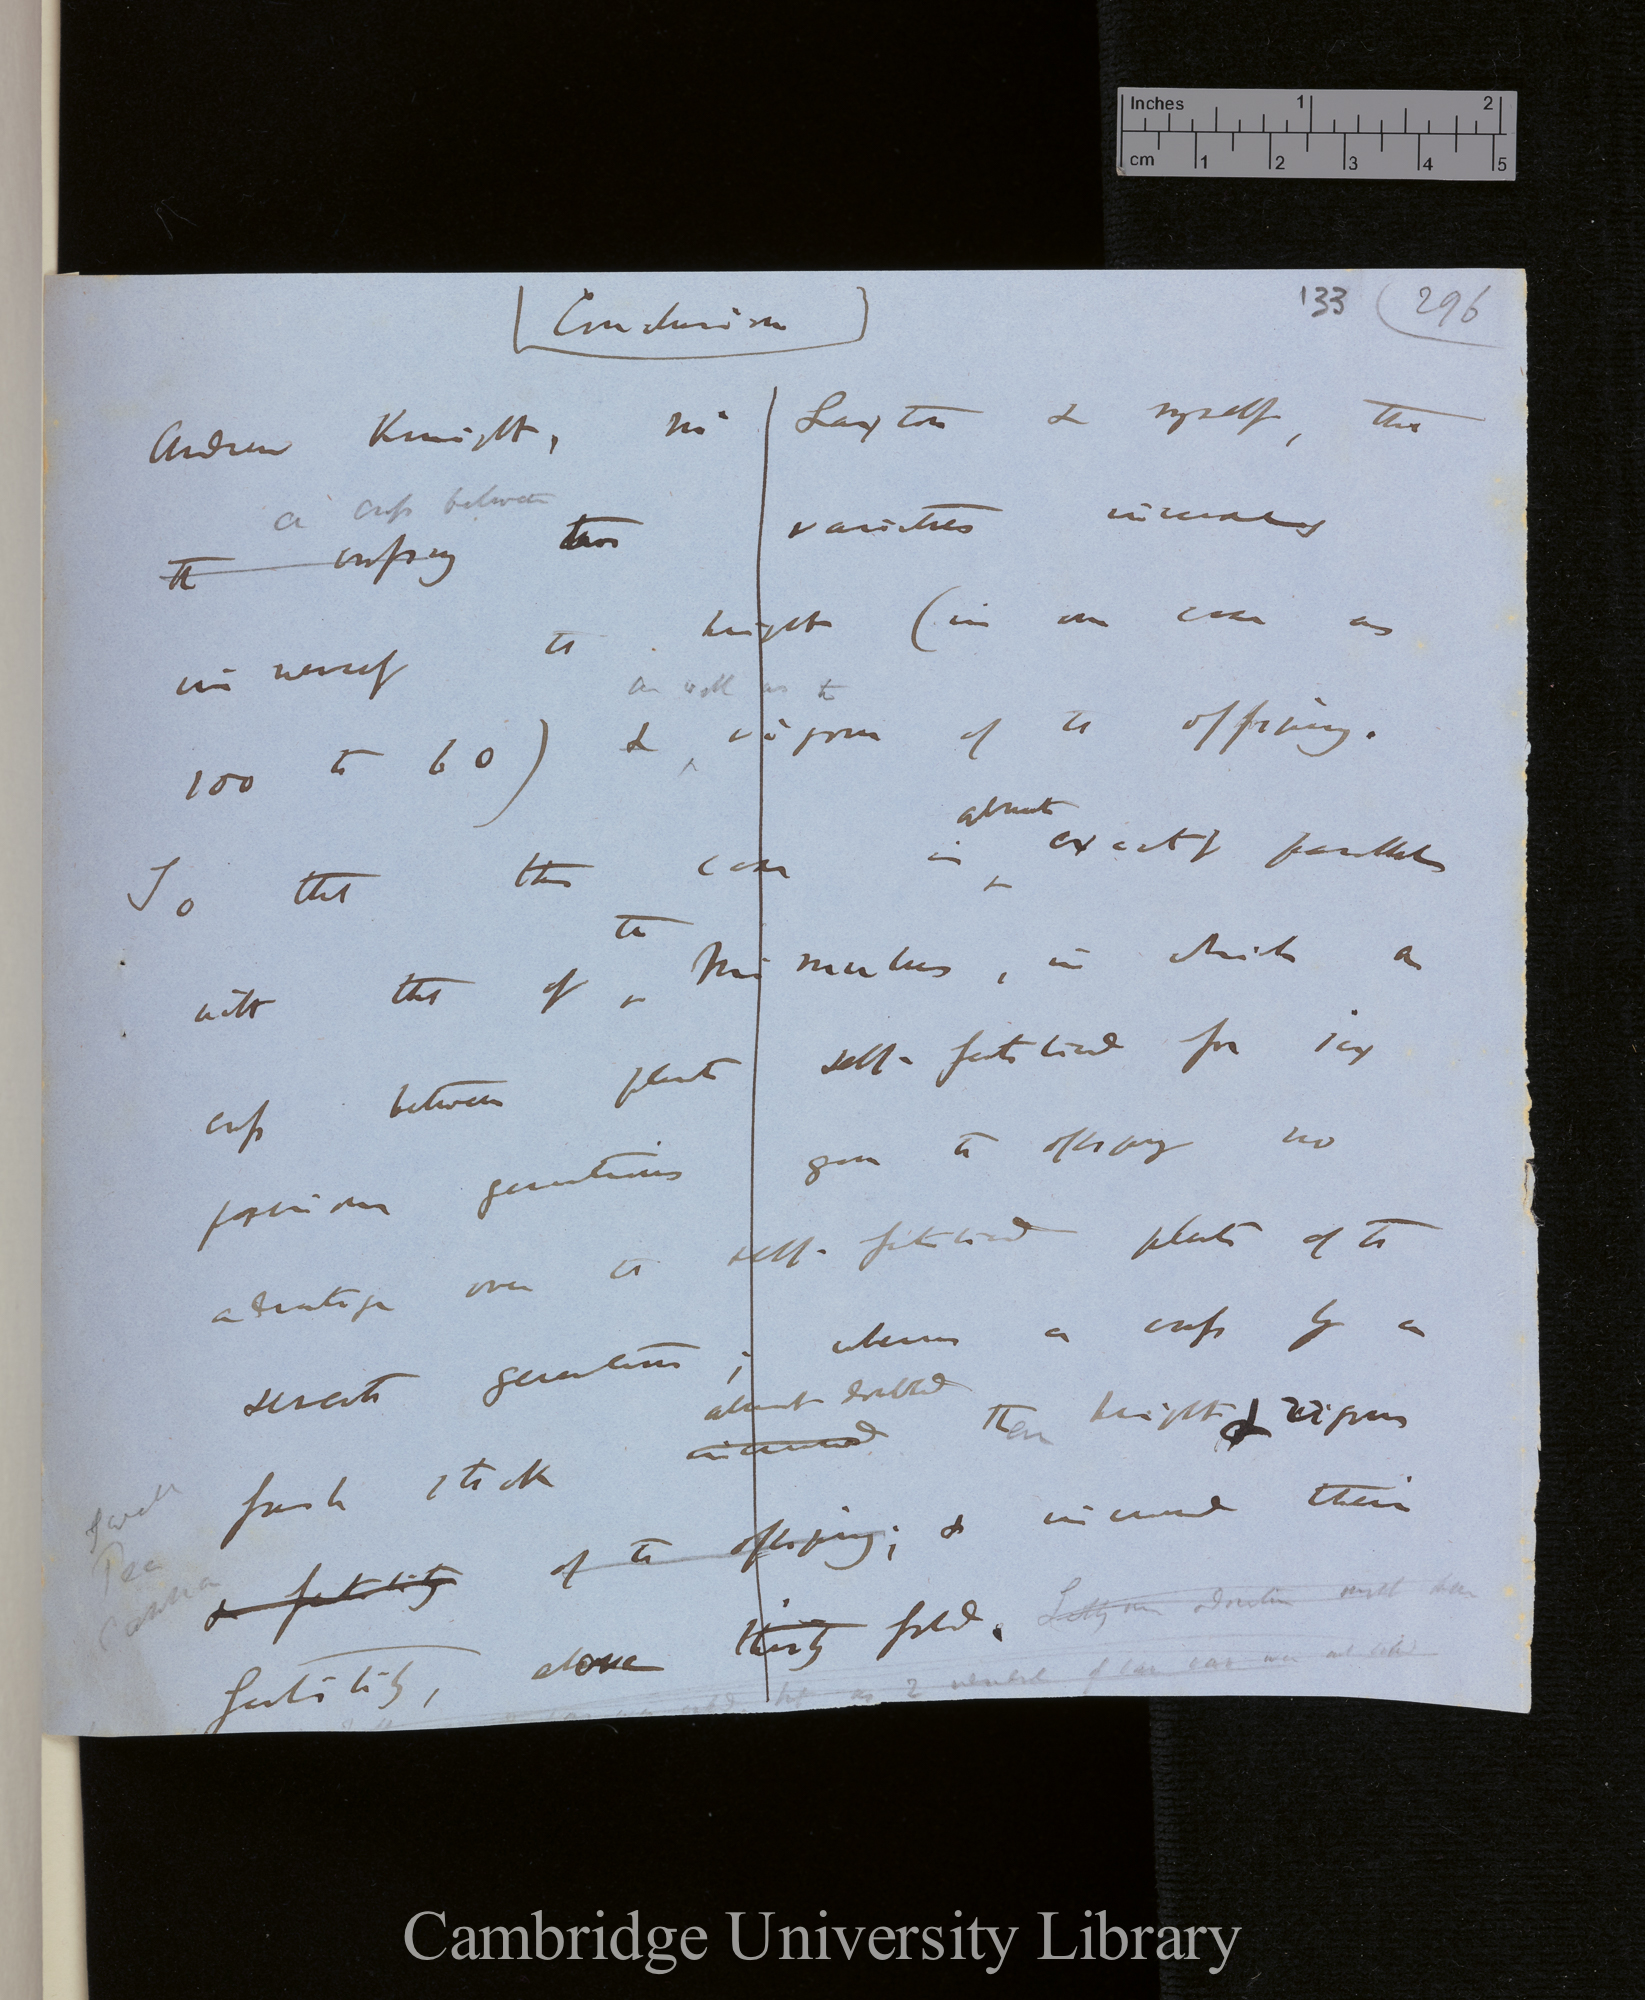 Inches 1 2
cm 1 2 3 4 5
133 (296
[Conclusion]
Andrew Knight, Mr Laxton & myself, that
a cross between
the crossing two varieties increases
immensely the height (in one case as
as well as the
100 to 60) & vigour of the offspring.
almost
So that this case is exactly parallel
the
with that of Mimulus, in which a
cross between plants self-fertilised for six
previous generations gave the offspring no
advantage over the self-fertilised plants of the
seventh generation; whereas a cross by a
almost doubled
fresh stock increased their height & vigour
& fertility of the offspring; & increased their
fertility, above thirty fold.
Sweet
Pea
Cambridge University Library